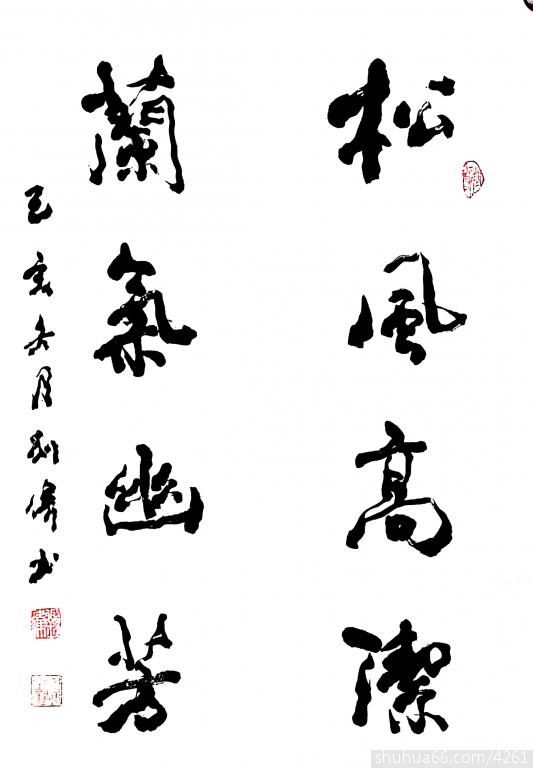 松風高潔
蘭氣幽芳
己亥冬月劉偉書
shuhua66.com/4261